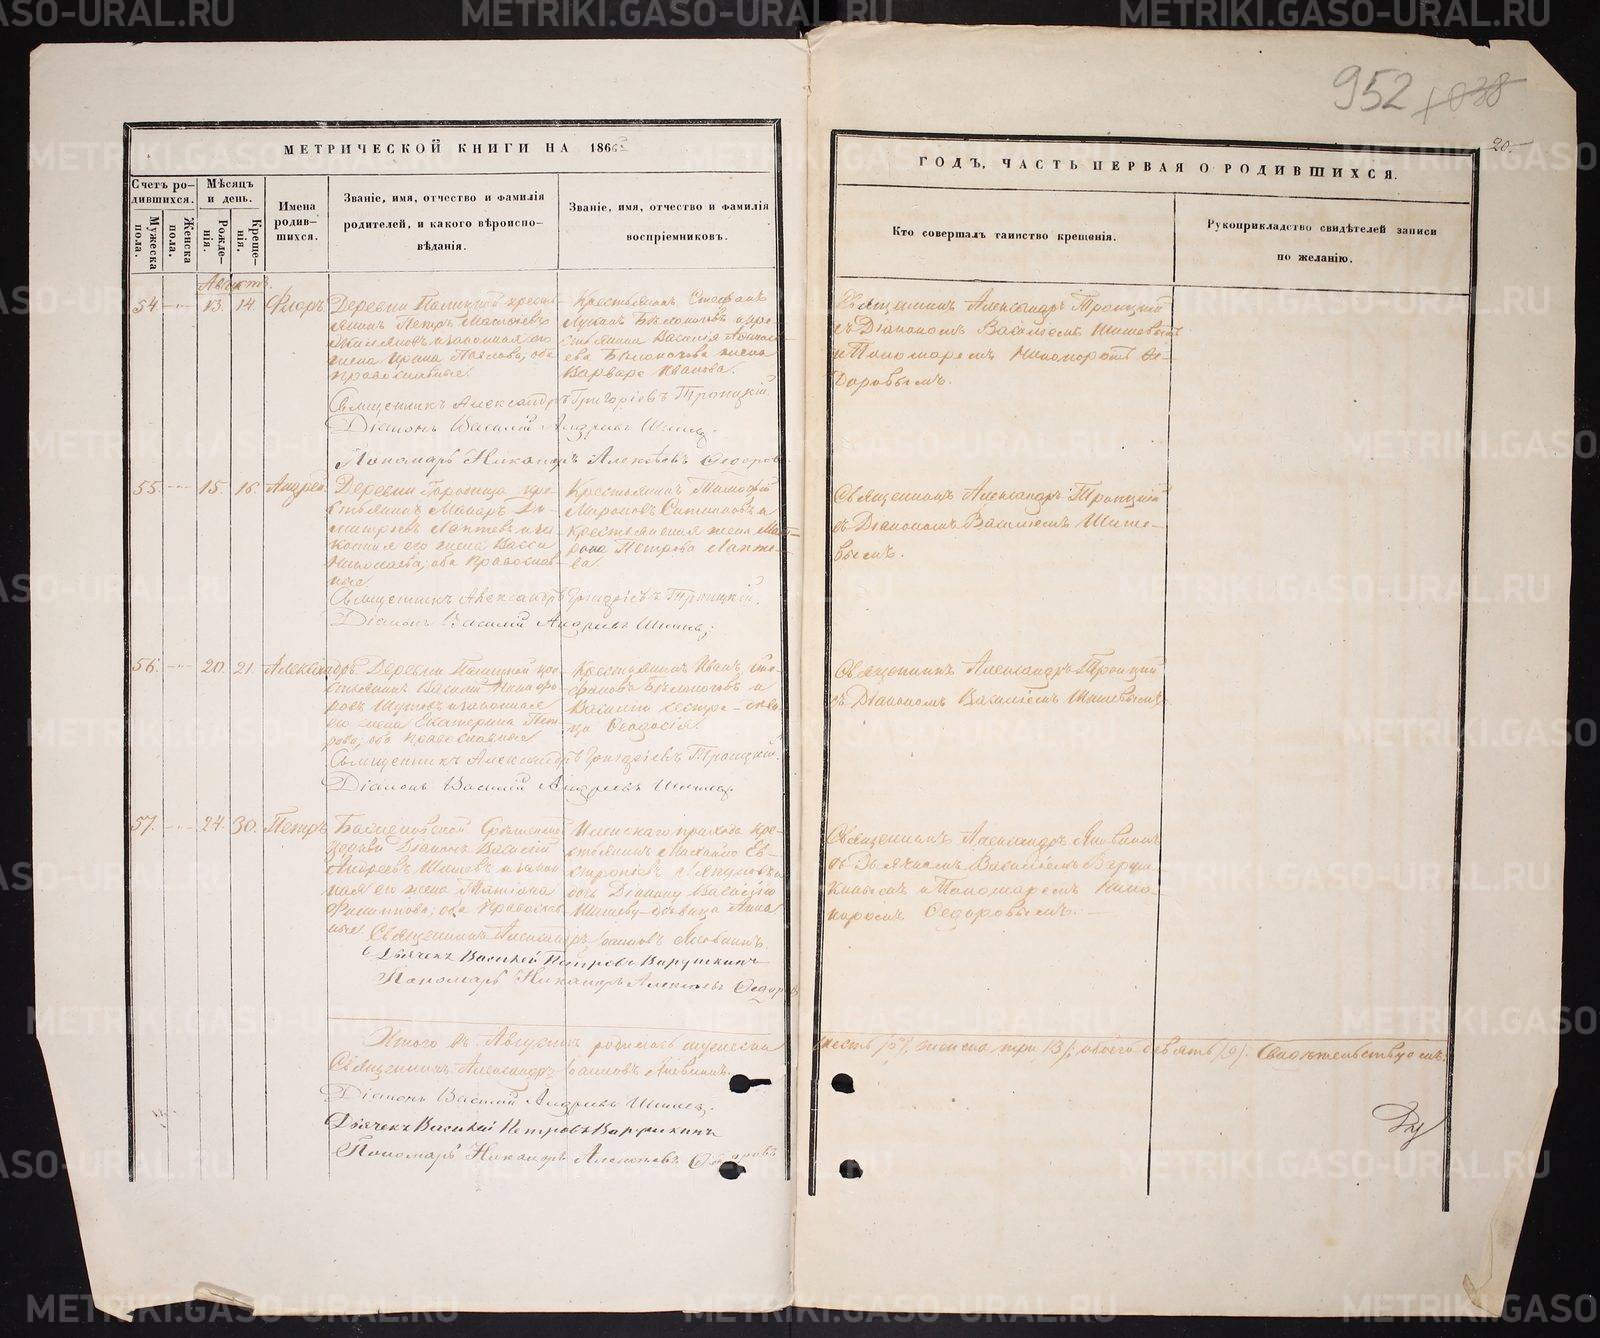 952 1038
20.
МЕТРИЧЕСКОЙ КНИГИ НА 186
ГОДЪ, ЧАСТЬ ПЕРВАЯ О РОДИВШИХСЯ.
Счетъ родившихся.
Мужеска пола.
Женска пола.
Мѣсяцъ и день.
Рожденія.
Крещенія.
Имена родившихся.
Званіе, имя, отчество и фамилія
родителей, и какого вѣроисповѣданія.
Званіе, имя, отчество и фамилія
воспріемниковъ.
Кто совершалъ таинство крещенія.
Рукоприкладство свидѣтелей записи
по желанію.
Августъ.
54. 13. 14. Флоръ
Деревни крестьянинъ Петръ
и законная его
жена Ирина Павлова, оба
православные.
Крестьянинъ Стефанъ
Лукинъ Бѣлоноговъ и крестьянина Василія
Бѣлоногова жена
Варвара Иванова.
Священникъ Александръ Троицкій
съ Діакономъ Василіемъ Шишевымъ
и Пономаремъ Никаноромъ Ѳедоровымъ.
Священникъ Александръ Григоріевъ Троицкій.
Діаконъ Василій Андреевъ Шишевъ.
Пономарь Никаноръ Алексѣевъ Ѳедоровъ
55. 15. 16. Андрей.
Деревни Городища крестьянинъ Макаръ Димитріевъ Лаптевъ и законная его жена Васса
Николаева, оба православные.
Крестьянинъ Тимоѳей
Мироновъ и
крестьянская жена Матрона Петрова Лаптева.
Священникъ Александръ Троицкій
съ Діакономъ Василіемъ Шишевымъ.
Священникъ Александръ Григоріевъ Троицкій.
Діаконъ Василій Андреевъ Шишевъ.
56. 20. 21. Александръ.
Деревни крестьянинъ Василій Никифоровъ и законная
его жена Екатерина Петрова, оба православные.
Крестьянинъ Иванъ Стефановъ Бѣлоноговъ и
Василія сестра дѣвица Ѳеодосія.
Священникъ Александръ Троицкій
съ Діакономъ Василіемъ Шишевымъ.
Священникъ Александръ Григоріевъ Троицкій.
Діаконъ Василій Андреевъ Шишевъ.
57. 24. 30. Петръ
Діаконъ Василій
Андреевъ Шишевъ и законная его жена Татіана
Филиппова, оба православные.
прихода крестьянинъ Михайло
и
дочь Діакона Василія
Шишева дѣвица Анна
Священникъ Александръ Яковкинъ
съ Дьячкомъ Василіемъ Варушкинымъ и Пономаремъ Никаноромъ Ѳедоровымъ.
Священникъ Александръ Іоанновъ Яковкинъ.
Дьячекъ Василій Петровъ Варушкинъ
Пономарь Никаноръ Алексѣевъ Ѳедоровъ
Итого въ Августѣ родилось мужеска
шесть /6/, женска три /3/, обоего девять /9/. Свидѣтельствуемъ:
Священникъ Александръ Іоанновъ Яковкинъ.
Діаконъ Василій Андреевъ Шишевъ.
Дьячекъ Василій Петровъ Варушкинъ
Пономарь Никаноръ Алексѣевъ Ѳедоровъ
METRIKI.GASO-URAL.RU